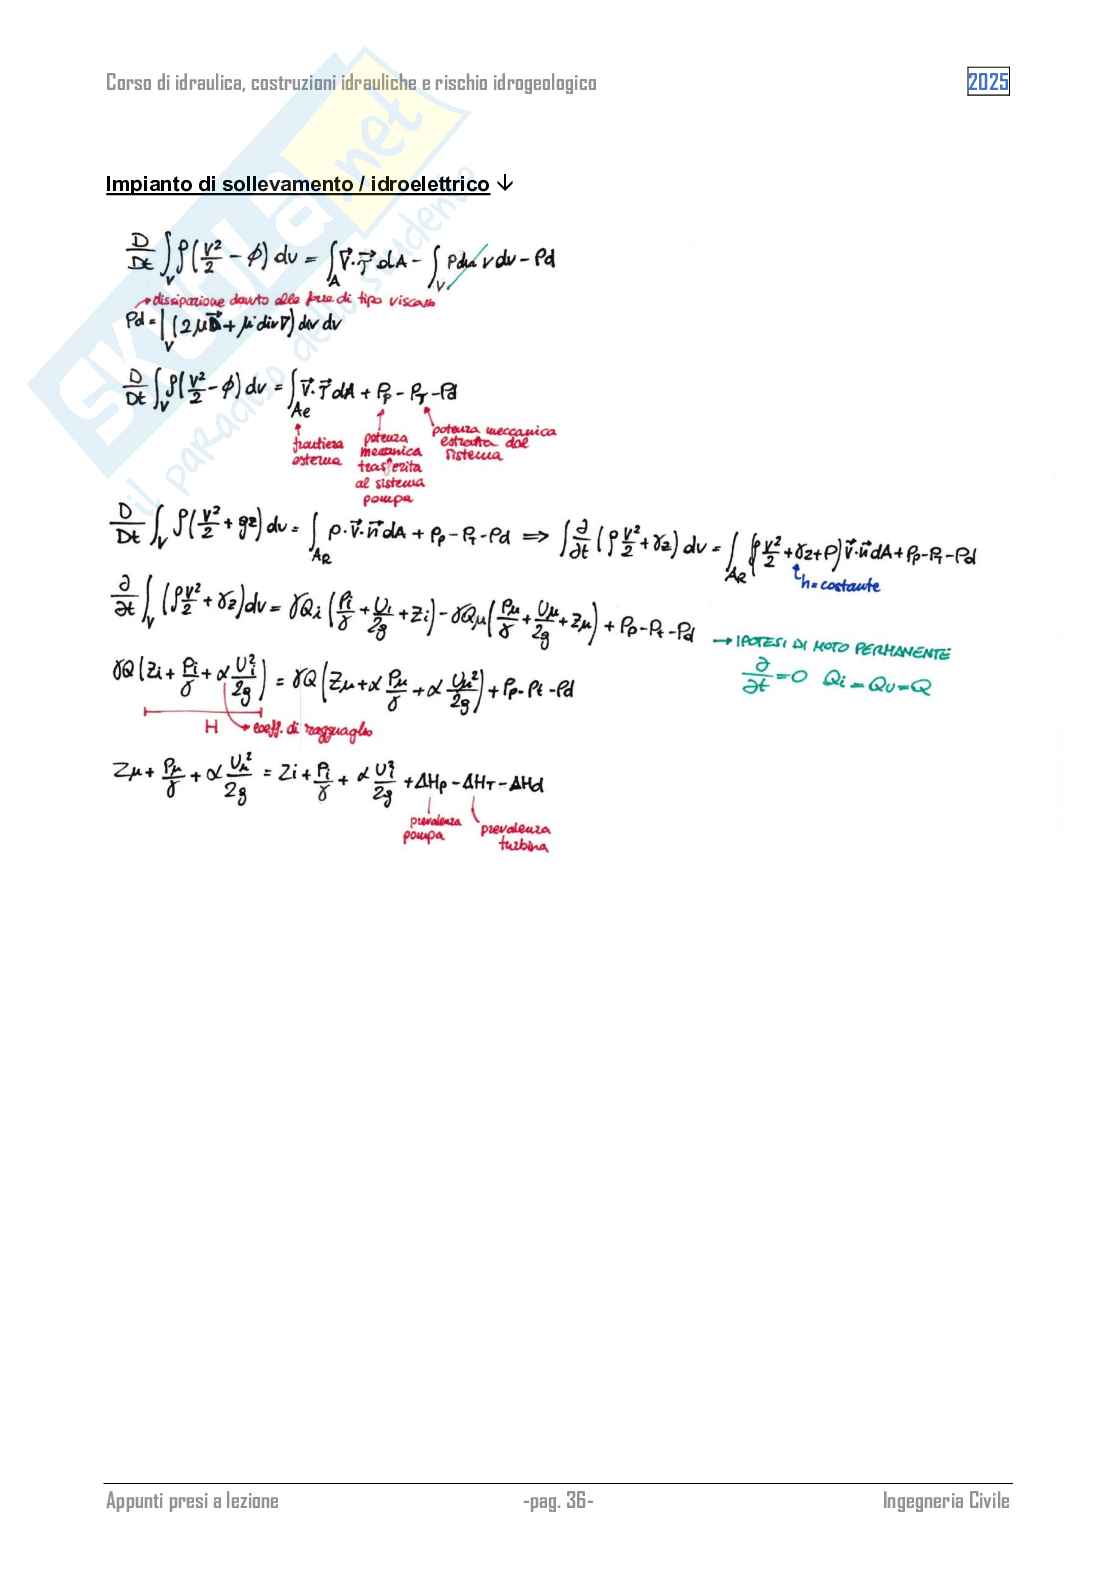 Corso di idraulica, costruzioni idrauliche e rischio idrogeologico 2025
Impianto di sollevamento / idroelettrico ↓
D/Dt ∫_V ρ(V²/2 − ϕ) dv = ∫_A V⃗·T⃗ dA − ∫_V P div V dv − Pd
→ dissipazione dovuto alle forze di tipo viscoso
Pd = ∫_V (2μD + μ' div V) div dv
D/Dt ∫_V ρ(V²/2 − ϕ) dv = ∫_Ae V⃗·T⃗ dA + Pp − PT − Pd
frontiera esterna
potenza meccanica trasferita al sistema pompa
potenza meccanica estratta dal sistema
D/Dt ∫_V ρ(V²/2 + gz) dv = ∫_AR p·V⃗·n⃗ dA + Pp − Pt − Pd ⟹ ∫ ∂/∂t (ρ V²/2 + γz) dv = ∫_AR (ρ V²/2 + γz + p) V⃗·n⃗ dA + Pp − PT − Pd
h = costante
∂/∂t ∫_V (ρ V²/2 + γz) dv = γQi (Pi/γ + Ui/2g + zi) − γQμ (Pμ/γ + Uμ/2g + zμ) + Pp − Pt − Pd
→ IPOTESI DI MOTO PERMANENTE
∂/∂t = 0 Qi = Qu = Q
γQ (Zi + Pi/γ + α Ui²/2g) = γQ (Zμ + α Pμ/γ + α Uμ²/2g) + Pp − Pt − Pd
H → coeff. di ragguaglio
Zμ + Pμ/γ + α Uμ²/2g = Zi + Pi/γ + α Ui²/2g + ΔHp − ΔHT − ΔHd
prevalenza pompa
prevalenza turbina
Appunti presi a lezione -pag. 36- Ingegneria Civile
SKUOLA.net
il paradiso dello studente